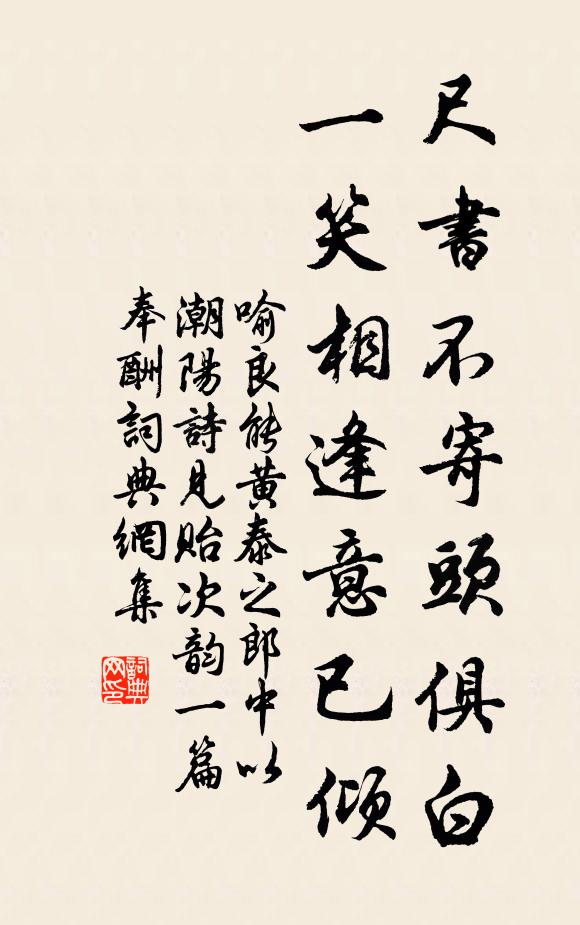 尺書不寄頭俱白
一笑相逢意已傾
喻良能黄泰之郎中以
潮陽詩見貽次韵一篇
奉酬詞典網集
詞典
网印